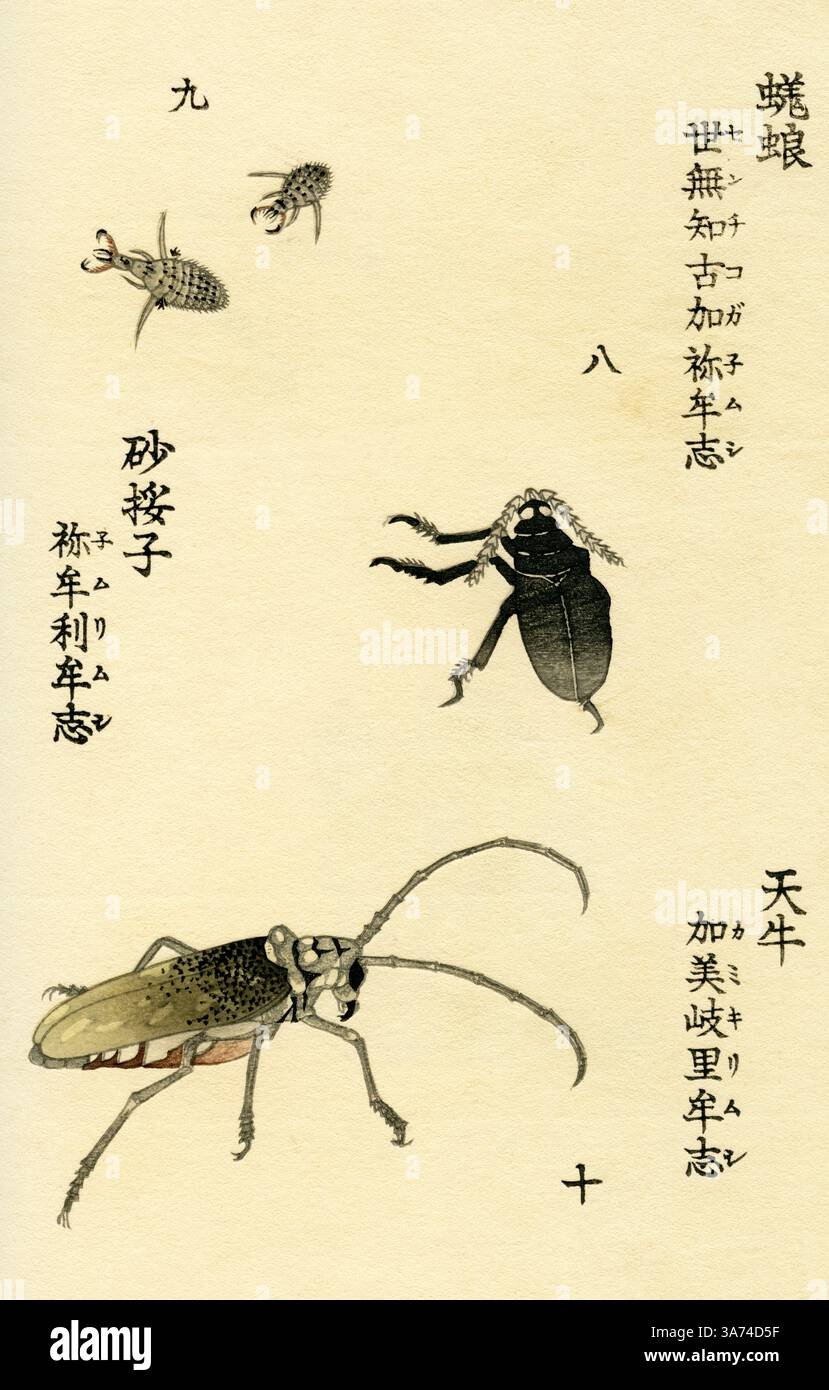 蜣蜋
世無知古加祢牟志
センチコガ子ムシ
八
九
砂挼子
祢牟利牟志
子ムリムシ
天牛
加美岐里牟志
カミキリムシ
十
alamy
a
alamy
3A74D5F
www.alamy.com